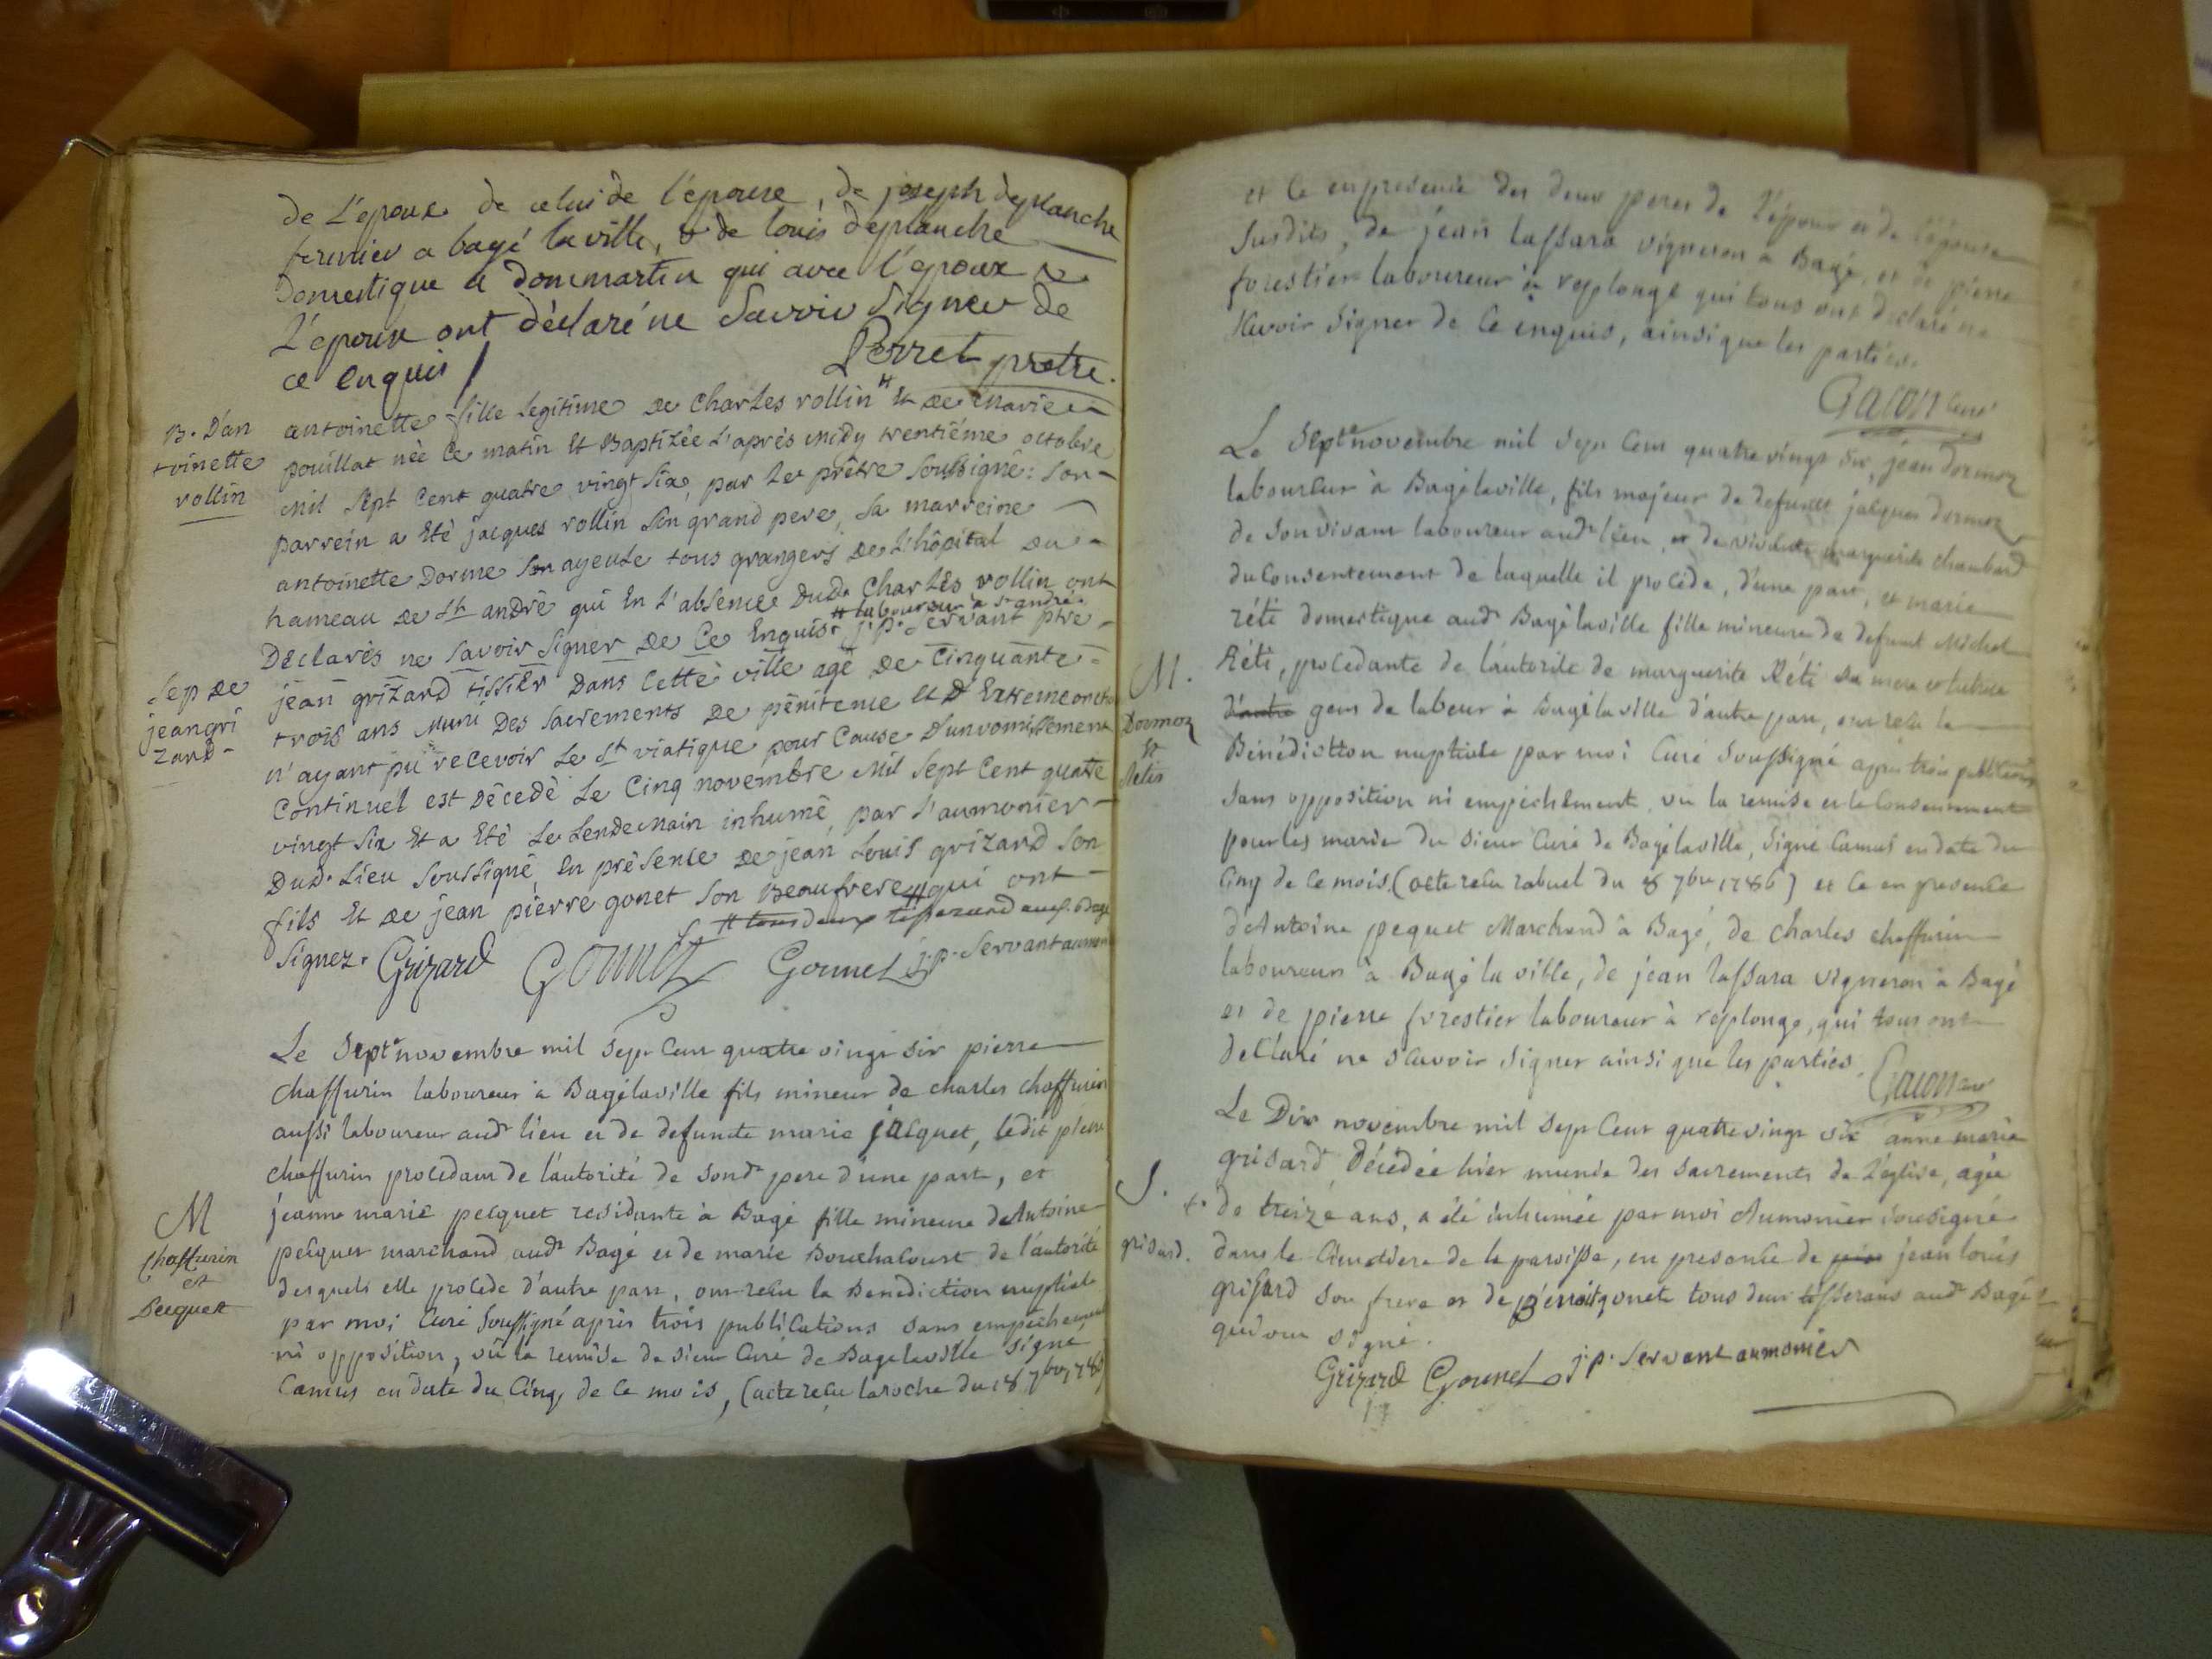 de L'epoux de celui de l'épouse, de joseph deplanche
fermier a bagé la ville, & de louis deplanche
Domestique a dommartin qui avec l'epoux &
L'epouse ont déclaré ne Savoir Signer de
ce enquis / Perret pretre.
B. D'an
toinette
rollin
antoinette fille legitime de Charles rollin # Et de marie
pouillat née Ce matin Et Baptizée L'après midy trentiéme octobre
mil Sept Cent quatre vingt Six, par Le prêtre Soussigné: Son
parrein a Eté jacques rollin Son grand pere, Sa marreine
antoinette Dorme Son ayeule tous grangers de L'hôpital du
hameau de St andré qui En L'absence Dud. Charles rollin ont
# laboureur a st andré.
Déclarés ne Savoir Signer De Ce Enquis. j. p. Servant ptre
Sep de
jean gri
zard
jean grizard tissier Dans Cette ville agé De Cinquante
trois ans Muni Des Sacrements De pénitence Et D'Extremeonction
n'ayant pu recevoir Le St viatique pour Cause D'un vomissement
Continuel est Décedé Le Cinq novembre Mil Sept Cent quatre
vingt Six Et a Eté Le Lendemain inhumé par L'aumonier
Dud. Lieu Soussigné, En présence de jean Louis grizard Son
fils Et de jean pierre gonet Son Beaufrere # qui ont
# tous deux tisserand aud. Bagé
Signez. Grizard Gounet Gounet j. p. Servant aumon
M
Chaffurin
et
Pecquet
Le Sept novembre mil Sept Cent quatre vingt six pierre
Chaffurin laboureur à Bagélaville fils mineur de charles chaffurin
aussi laboureur audt lieu et de defuncte marie jacquet, ledit pierre
chaffurin procedant de l'autorité de Sondt pere d'une part, et
jeanne marie pecquet residante à Bagé fille mineure de Antoine
pecquet marchand audt Bagé et de marie Bouchacourt de l'autorité
desquels elle procede d'autre part, ont reçu la Benediction nuptiale
par moi Curé Soussigné après trois publications sans empechement
ni opposition, vû la remise de sieur Curé de Bagélaville Signé
Camus en date du Cinq de Ce mois, (acte reçu laroche du 18 7bre 1786)
et Ce en presence des deux peres de l'époux et de l'épouse
Susdits, de jean lassara vigneron à Bagé, et de pierre
forestier laboureur à replonge qui tous ont declaré ne
Scavoir Signer de Ce enquis, ainsi que les parties.
Gacon Curé
M.
Dormoz
Et
Retis
Le Sept novembre mil Sept Cent quatre vingt six, jean Dormoz
laboureur à Bagélaville, fils majeur de defunct jacques Dormoz
de Son vivant laboureur audt lieu, et de vivante marguerite chambard
du Consentement de laquelle il procéde, d'une part, et marie
réti domestique audt Bagélaville fille mineure de defunt Michel
Réti, procedante de l'autorité de marguerite Réti sa mere et tutrice
d'autre gens de labeur à Bagélaville d'autre part, ont reçu la
Bénédiction nuptiale par moi Curé Soussigné après trois publications
sans opposition ni empéchément, vû la remise et le Consentement
pour les marier du sieur Curé de Bagélaville, Signé Camus en date du
Cinq de Ce mois, (acte reçu rabuel du 18 7bre 1786) et Ce en presence
d'Antoine pequet Marchand à Bagé, de charles chaffurin
laboureur à Bagé la ville, de jean lassara vigneron à Bagé
et de pierre forestier laboureur à replonge, qui tous ont
declaré ne Scavoir Signer ainsi que les parties.
Gacon Curé
S.
grisard.
Le Dix novembre mil Sept Cent quatre vingt six anne marie
grisard, Décédée hier munie des Sacrements de l'église, agée
de treize ans, a été inhumée par moi Aumonier soussigné
dans le Cimetiere de la paroisse, en presence de jean louis
grisard Son frere et de Benoit gonet tous deux tisserans audt Bagé
qui ont Signé.
Grizard Gounet j. p. Servant aumonier